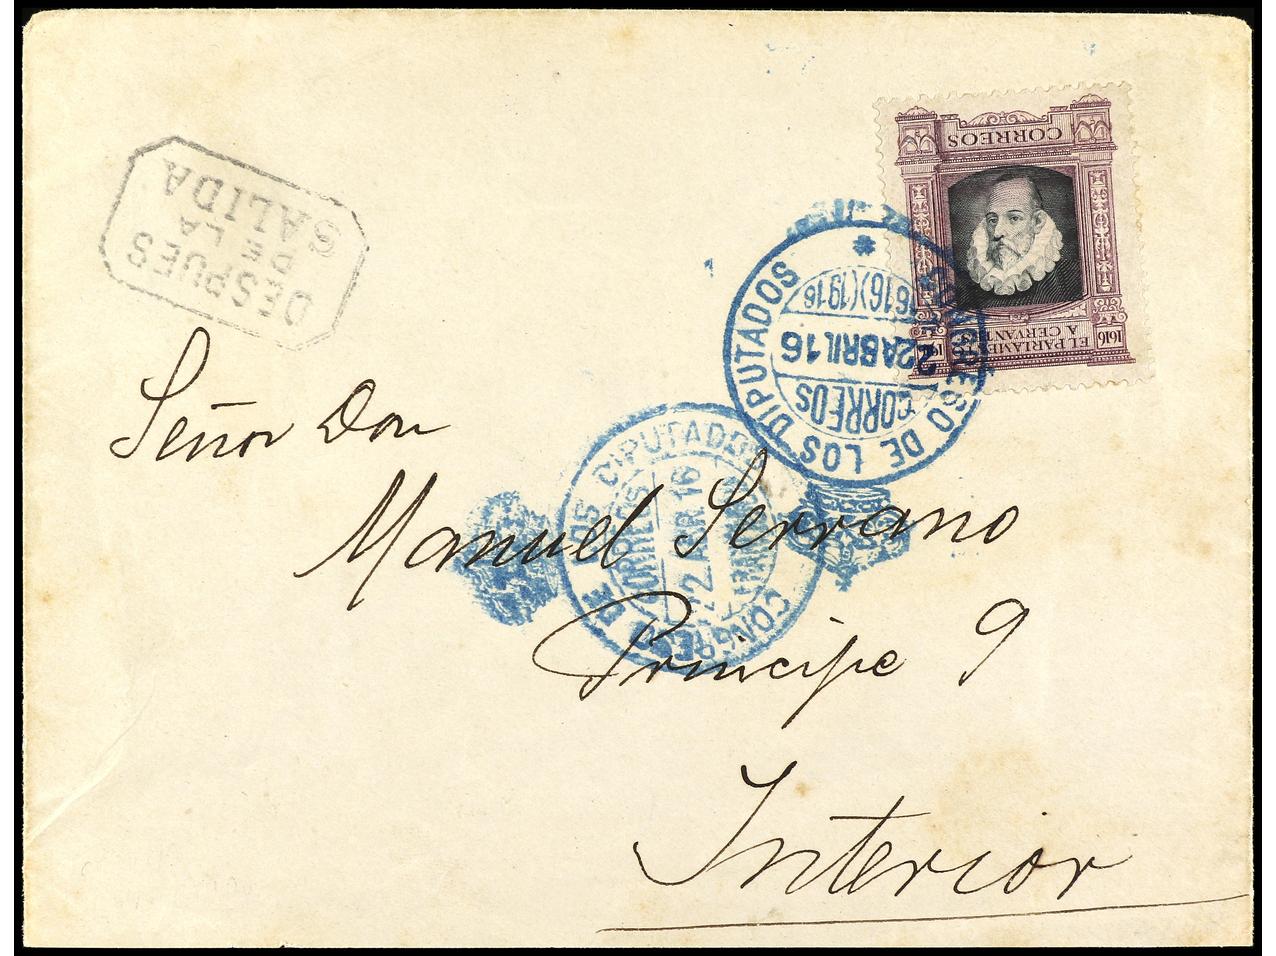 DESPUES
DE LA
SALIDA
CORREOS
EL PARLAMEN
A CERVAN
1616
CONGRESO DE LOS DIPUTADOS
22 ABRIL 16
CORREOS
CONGRESO DE LOS DIPUTADOS
CORREOS
22 ABR. 16
Señor Don
Manuel Serrano
Principe 9
Interior